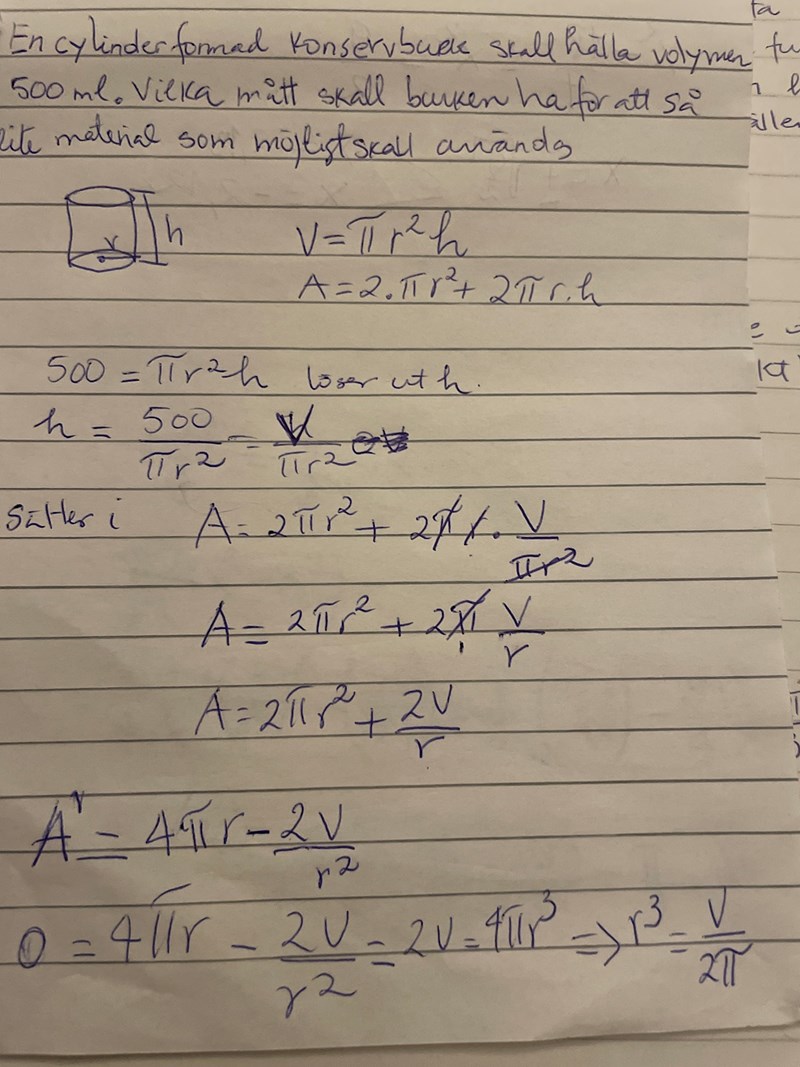 En cylinderformad konservburk skall hålla volymen
500 ml. Vilka mått skall burken ha för att så
lite material som möjligt skall används
r h
V = πr²h
A = 2·πr² + 2πr·h
500 = πr²h löser ut h.
h = 500/πr² = V/πr²
Sätter i A = 2πr² + 2πr · V/πr²
A = 2πr² + 2π V/r
A = 2πr² + 2V/r
A' = 4πr - 2V/r²
0 = 4πr - 2V/r² = 2V = 4πr³ => r³ = V/2π